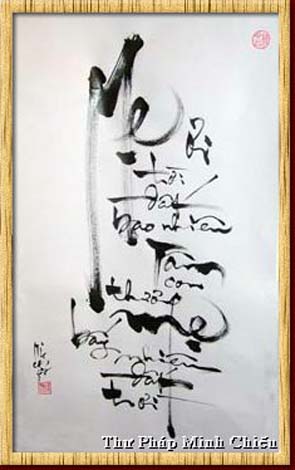 Mẹ ơi
trời
đất
bao nhiêu
Tâm
con
thương
mẹ
bấy
nhiêu
đất
trời
Thư Pháp Minh Chiếu